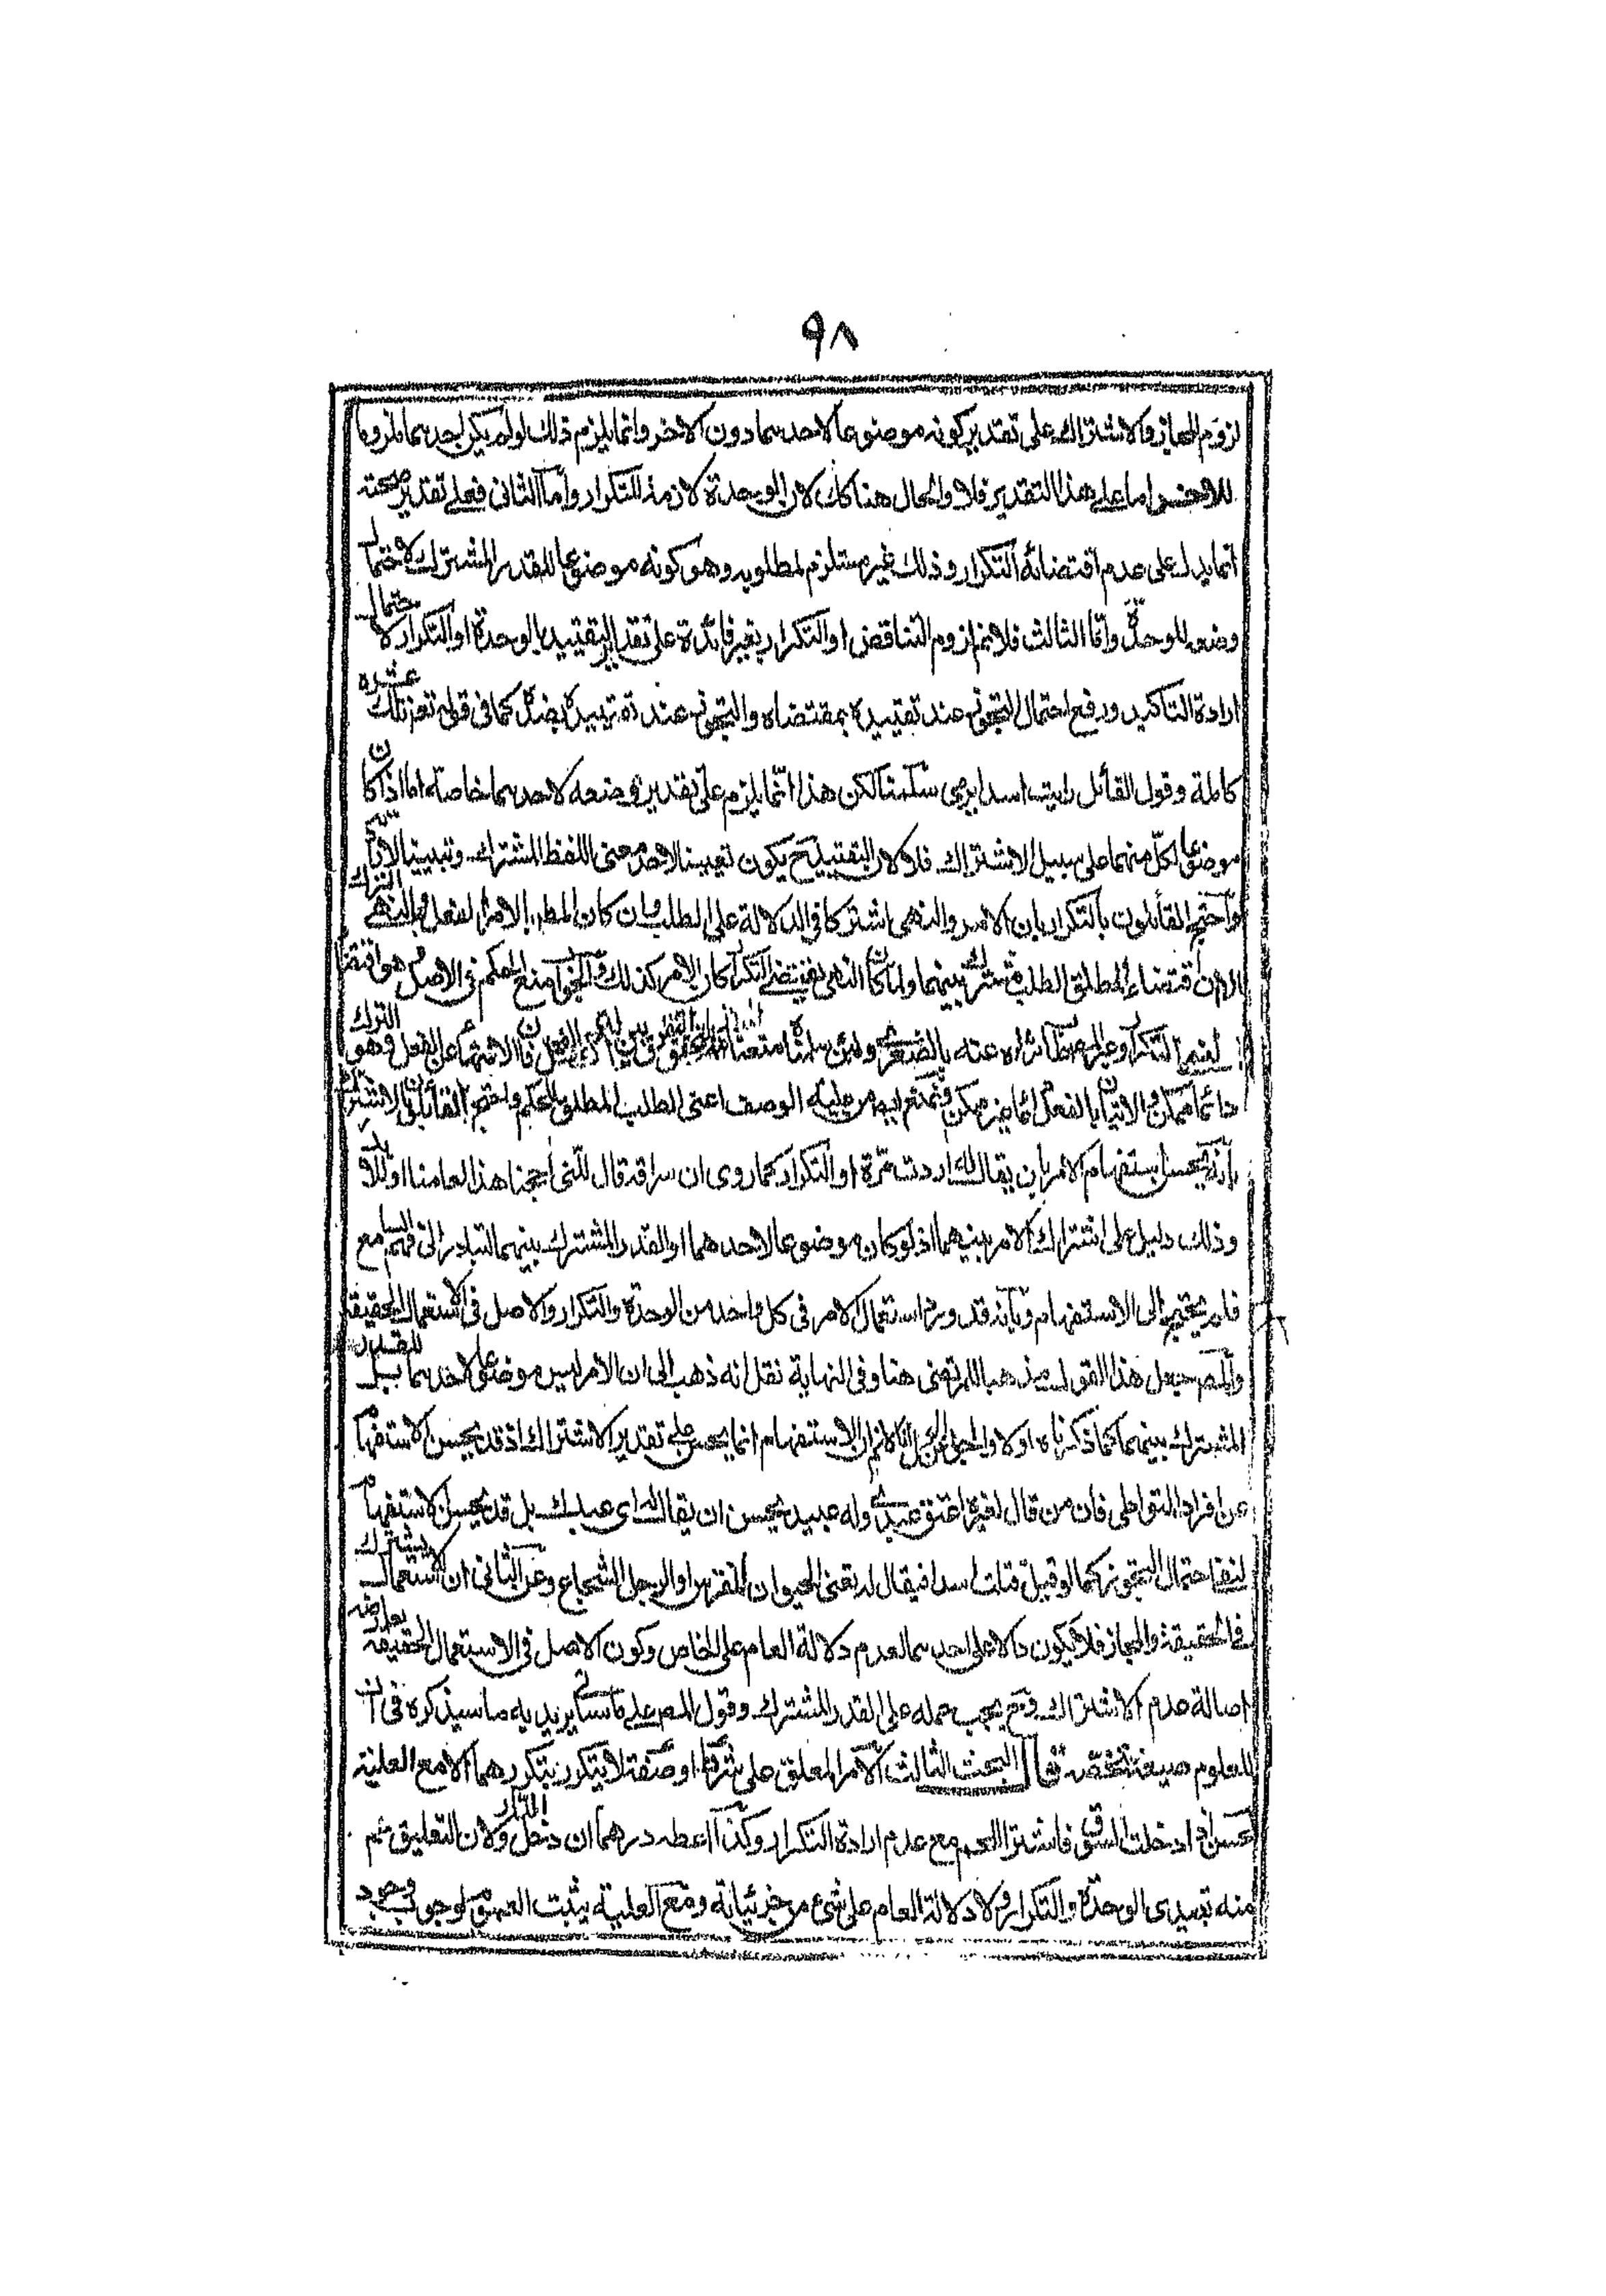 ٩٨
لزوم المجاز والاشتراك على تقدير كونه موضوعا لاحدهما دون الاخر وانما يلزم ذلك لو لم يكن احدهما ملزوما
للاخر اما على هذا التقدير فلا والحال هنا كك لان الوحدة لازمة للتكرار واما الثانى فعلى تقدير صحته
انما يدل على عدم اقتضائه التكرار وذلك غير مستلزم لمطلوبه وهو كونه موضوعا للقدر المشترك لاحتمال
وضعه للوحدة واما الثالث فلا نم لزوم التناقض او التكرار بغير فائدة على تقدير التقييد بالوحدة او التكرار لاحتمال
ارادة التاكيد ورفع احتمال التجوز عند تقييده بمقتضاه والتجوز عند تقييده بضده كما فى قوله تع تلك عشرة
كاملة وقول القائل رايت اسدا يرمى سلمنا لكن هذا انما يلزم على تقدير وضعه لاحدهما خاصة اما اذا كان
موضوعا لكل منهما على سبيل الاشتراك فلا لان التقييد ح يكون تعيينا لاحد معنى اللفظ المشترك وتبيينا
واحتج القائلون بالتكرار بان الامر والنهى اشتركا فى الدلالة على الطلب وان كان المط بالامر الفعل وبالنهى الترك
لان اقتضاء مطلق الطلب مشترك بينهما ولما كان النهى يقتضى التكرار كان الامر كذلك والجواب منع الحكم فى الاصل
دائما ممكن والاتيان بالفعل دائما غير ممكن فيمتنع الوصف اعنى الطلب المطلق للحكم واحتج القائلون بالاشتراك
بانه يحسن استفهام الامر بان يقال له اردت مرة او التكرار كما روى ان سراقة قال للنبى احجنا هذا لعامنا او للابد
وذلك دليل على اشتراك الامر بينهما اذ لو كان موضوعا لاحدهما او القدر المشترك بينهما لتبادر الى فهم السامع
فلم يحتج الى الاستفهام وبانه قد ورد استعمال الامر فى كل واحد من الوحدة والتكرار والاصل فى الاستعمال الحقيقة
والمص جعل هذا القول مذهبا للمرتضى هنا وفى النهاية نقل انه ذهب الى ان الامر ليس موضوعا لاحدهما بل للقدر
المشترك بينهما كما ذكرناه اولا والجواب عن الاول انا لا نم ان الاستفهام انما يحسن على تقدير الاشتراك اذ قد يحسن الاستفهام
عن افراد المتواطى فان من قال لغيره اعتق عبدى وله عبيد يحسن ان يقال له اى عبيدك بل قد يحسن الاستفهام
لنفى احتمال التجوز كما لو قيل قتلت اسدا فيقال له تعنى الحيوان المفترس او الرجل الشجاع وعن الثانى ان الاستعمال يشترك
فى الحقيقة والمجاز فلا يكون دالا على احدهما لعدم دلالة العام على الخاص وكون الاصل فى الاستعمال الحقيقة يعارضه
اصالة عدم الاشتراك وح يجب حمله على القدر المشترك وقول المص على ما سياتى يريد به ما سيذكره فى ان
للعلوم صيغة تخصه قال البحث الثالث الامر المعلق على شرط او صفة لا يتكرر بتكررهما الا مع العلية
يحسن اذ ادخلت السوق فاشتر اللحم مع عدم ارادة التكرار وكذا اعطه درهما ان دخل الدار ولان التعليق اعم
منه بقيدى الوحدة والتكرار ولا دلالة العام على شئ من جزئياته ومع العلية يثبت العموم لوجوب وجود